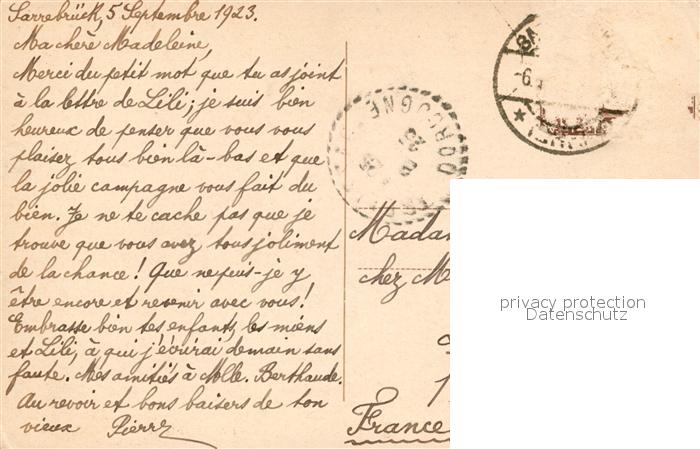 Sarrebrück, 5 Septembre 1923.
Ma chère Madeleine,
Merci du petit mot que tu as joint
à la lettre de Lili; je suis bien
heureux de penser que vous vous
plaisez tous bien là-bas et que
la jolie campagne vous fait du
bien. Je ne te cache pas que je
trouve que vous avez tous joliment
de la chance! Que ne puis-je y
être encore et revenir avec vous!
Embrasse bien tes enfants, les miens
et Lili, à qui j'écrirai demain sans
faute. Mes amitiés à Mlle. Berthaude.
Au revoir et bons baisers de ton
vieux Pierre
DORDOGNE
Madam
chez M
France
privacy protection
Datenschutz